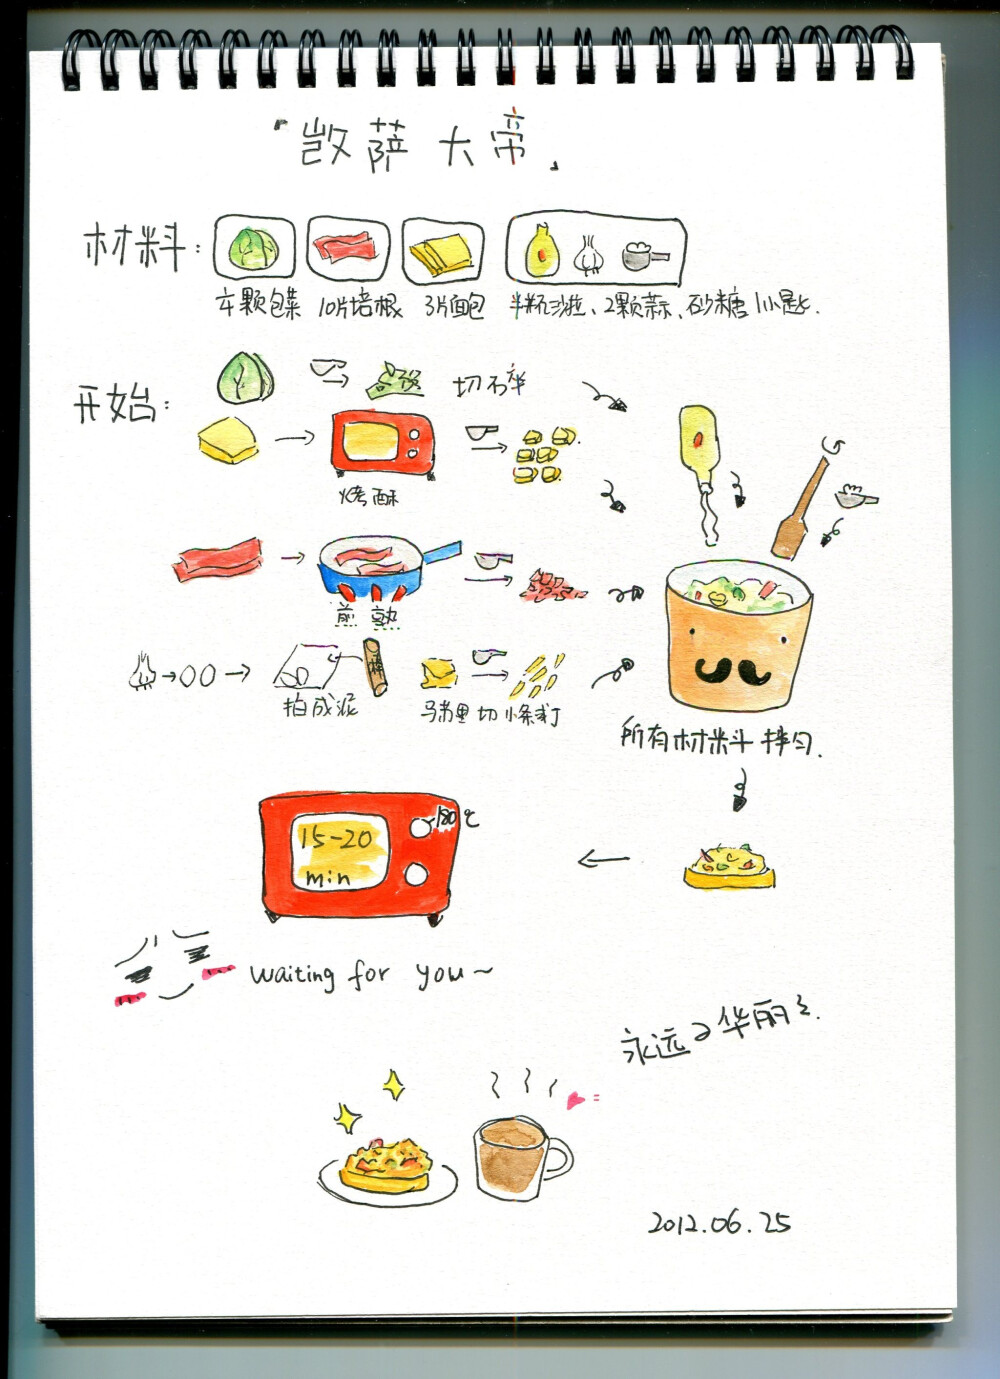 「凯萨大帝」
材料：
半颗包菜 10片培根 3片面包 半瓶沙拉、2颗蒜、砂糖1小匙.
开始：
切碎
烤酥
煎熟
拍成泥 马苏里切小条或丁
所有材料拌匀.
15-20
min
180℃
waiting for you~
永远の华丽
2012.06.25